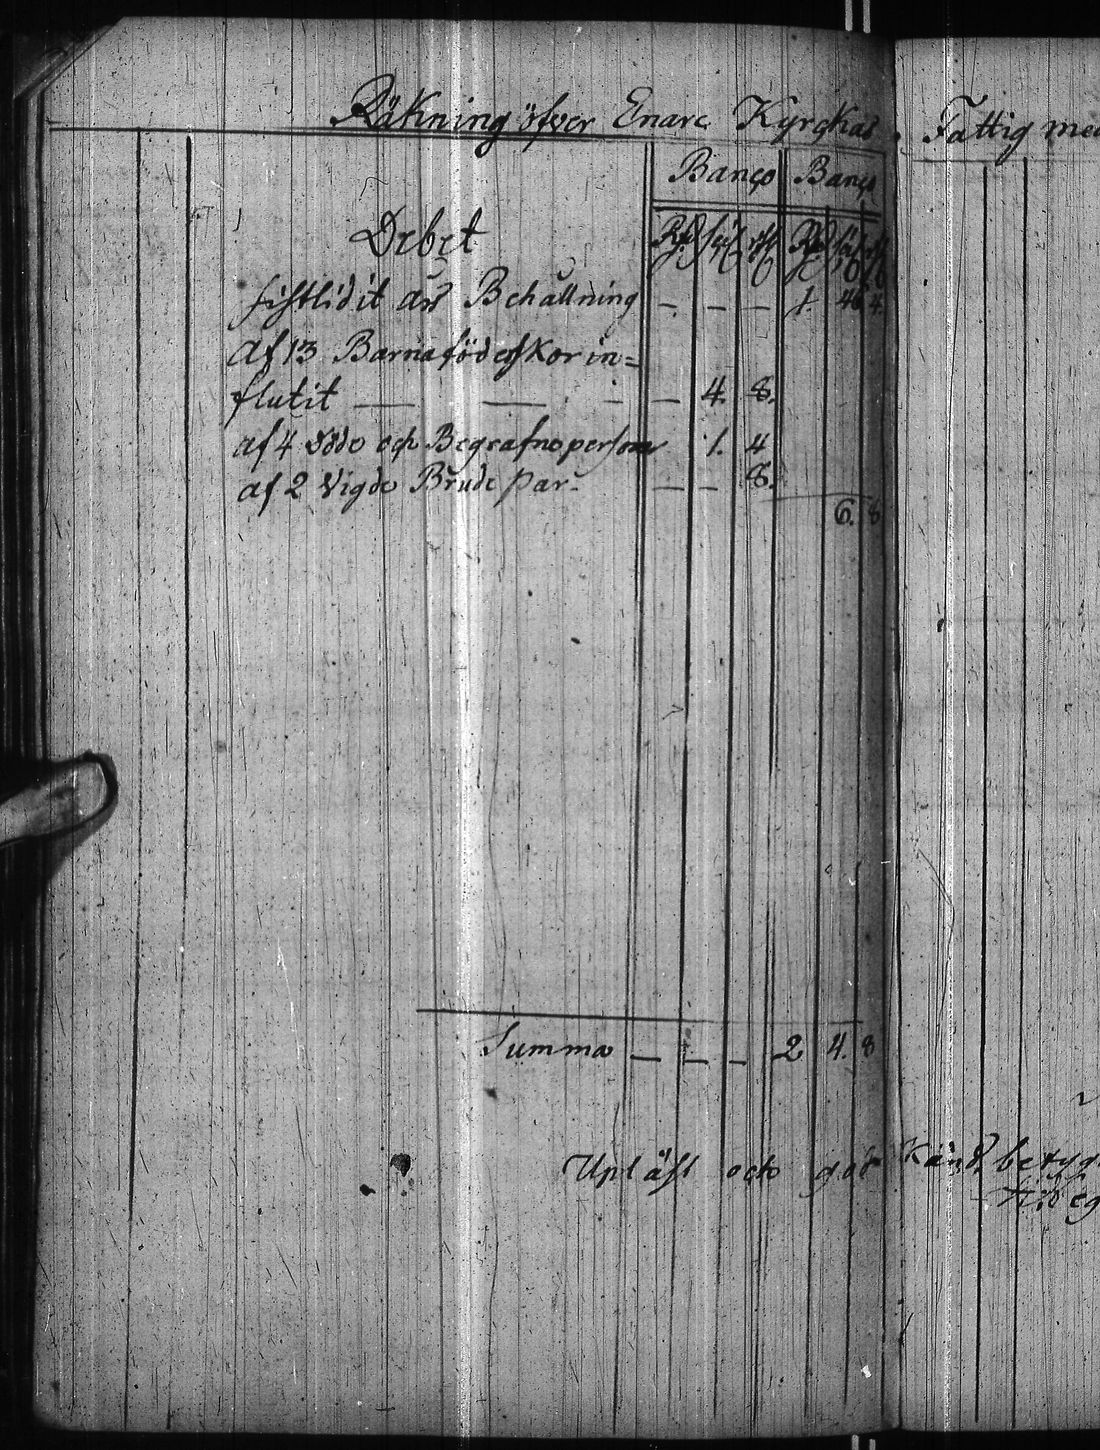 Räkning öfver Enare Kyrckas Fattig med
Banco Banco
Debet Rd sk rst Rd sk rst
sistlidit års Behållning — — — 1. 46 4.
Af 13 Barnaföderskor in=
flutit — — — — 4. 8.
af 4 döde och Begrafne person 1. 4
af 2 Vigde Brude par — — 8.
6. 8
Summa — — — 2 4. 8
Upläst och god Känd betyg